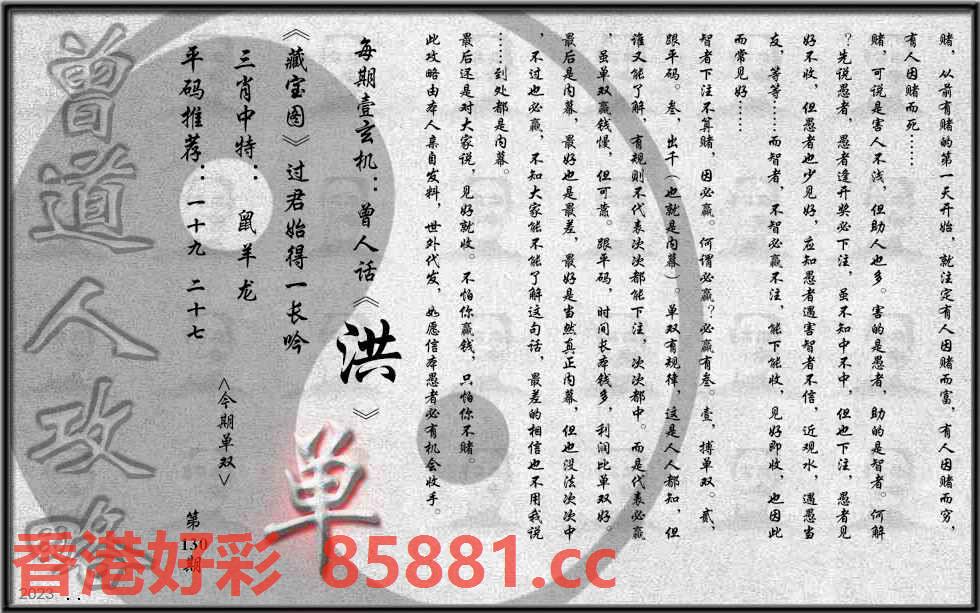 赌，从前有赌的第一天开始，就注定有人因赌而富，有人因赌而穷，
有人因赌而死……
赌，可说是害人不浅，但助人也多。害的是愚者，助的是智者。何解
？先说愚者，愚者逢开奖必下注，虽不知中不中，但也下注，愚者见
好不收，但愚者也少见好，应知愚者遇害智者不信，近观水，遇愚当
友，等等……而智者，不智必赢不注，能下能收，见好即收，也因此
而常见好……
智者下注不算赌，因必赢。何谓必赢？必赢有叁。壹，搏单双。贰，
跟平码。叁，出千（也就是内幕）。单双有规律，这是人人都知，但
谁又能了解，有规则不代表次次都能下注，次次都中。而是代表必赢
，虽单双赢钱慢，但可靠。跟平码，时间长本钱多，利润比单双好。
最后是内幕，最好也是最差，最好是当然真正内幕，但也没法次次中
，不过也必赢，不知大家能不能了解这句话，最差的相信也不用我说
……到处都是内幕。
最后还是对大家说，见好就收。不怕你赢钱，只怕你不赌。
此攻略由本人亲自发料，世外代发，如愿信本愚者必有机会收手。
每期壹玄机：曾人话《洪》
《藏宝图》过君始得一长吟
三肖中特：鼠羊龙
平码推荐：一十九 二十七
<今期单双>
单
第130期
曾道人攻略
香港好彩 85881.cc
2023